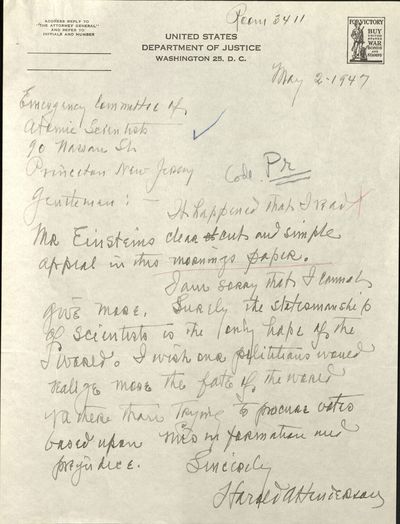 Room 3411
ADDRESS REPLY TO
"THE ATTORNEY GENERAL"
AND REFER TO
INITIALS AND NUMBER
UNITED STATES
DEPARTMENT OF JUSTICE
WASHINGTON 25, D. C.
FOR VICTORY
BUY
UNITED
STATES
WAR
BONDS
AND
STAMPS
May 2-1947
Emergency Committee of
Atomic Scientists
90 Nassau St
Princeton New Jersey
Code. Pr
Gentlemen: -
It happened that I read
Mr Einsteins clear cut and simple
appeal in this mornings paper.
I am sorry that I cannot
give more. Surely the statesmanship
of scientists is the only hope of the
world. I wish our politicians would
realize more the fate of the world
rather than trying to procure votes
based upon misinformation and
prejudice.
Sincerely
Harold A Henderson